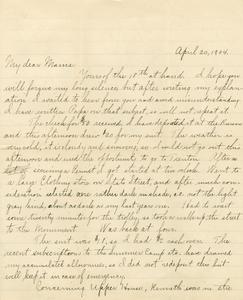 April 20, 1904.
My dear Mama:
Yours of the 18th at hand. I hope you
will forgive my long silence, but after writing my explan-
ation I waited to hear from you and avoid misunderstanding.
I have written Papa on that subject, so will not repeat it.
The check for $3 received. I have deposited it at the house
and this afternoon drew $20 for my suit. The weather is
very cold, it is windy and snowing, so I could not go out this
afternoon and used the opportunity to go to Trenton. After a
lot of scurrying I got started at two o'clock. Went to
a large Clothing store on State Street, and after much con-
sideration selected a rather dark mixture, or not the light
gray kind, about as dark as my last years one. I had to wait
some twenty minutes for the trolley, so took a walk up the street
to the Monument. Was back at four.
The suit was $18, so I had $2 cash over. The
recent subscription to the Summer Camp etc. have drained
my accumulated allowances, so I did not redeposit this but
will keep it in case of emergency.
Concerning Upper House, Kenneth was in the